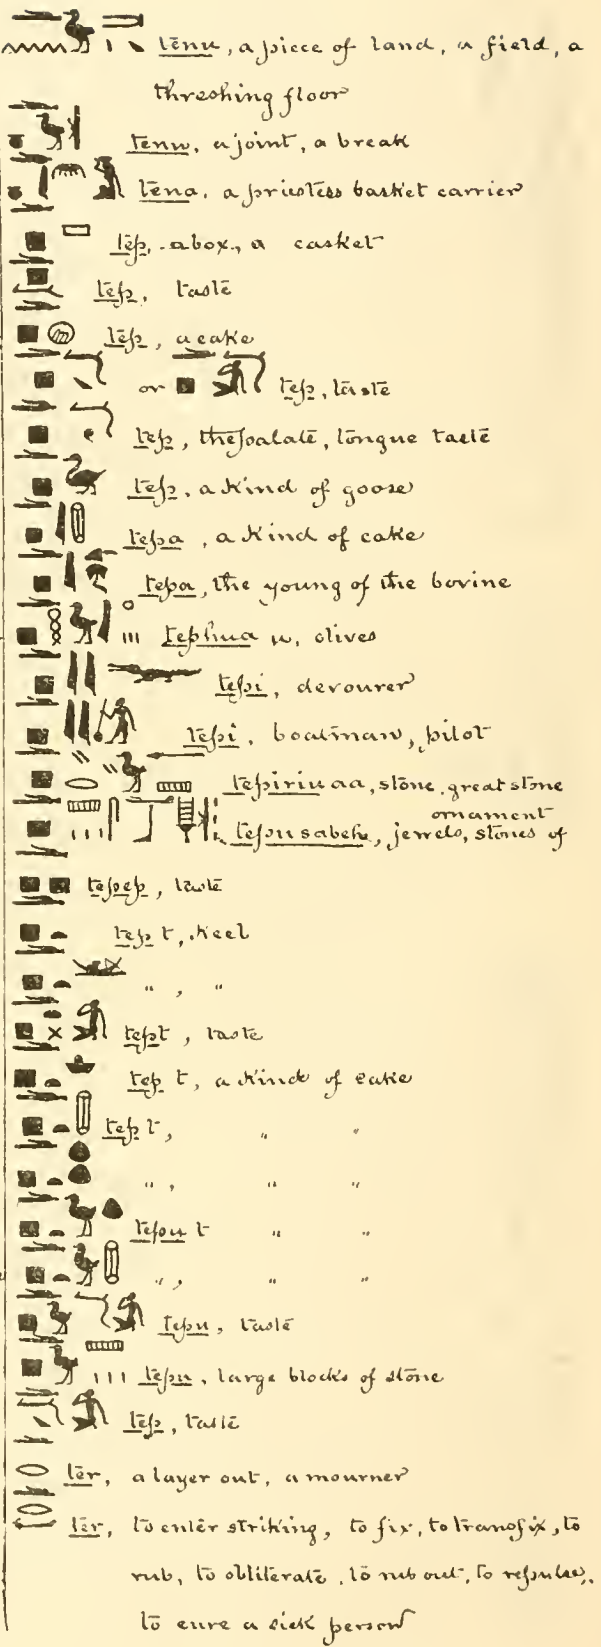 tenu, a piece of land, a field, a
threshing floor
tenu, a joint, a break
tena, a priestess basket carrier
tep, a box, a casket
tep, taste
tep, a cake
or tep, taste
tep, the palate, tongue taste
tep, a kind of goose
tepa, a kind of cake
tepa, the young of the bovine
tephua u, olives
tepi, devourer
tepi, boatman, pilot
tepiriu aa, stone, great stone
ornament
tepu sabeh, jewels, stones of
tepep, taste
tep t, keel
" , "
tept, taste
tep t, a kind of cake
tep t, " "
" , " "
tepu t " "
" , " "
tepu, taste
tepu, large blocks of stone
tep, taste
ter, a layer out, a mourner
ter, to enter striking, to fix, to transfix, to
rub, to obliterate, to rub out, to repulse,
to cure a sick person